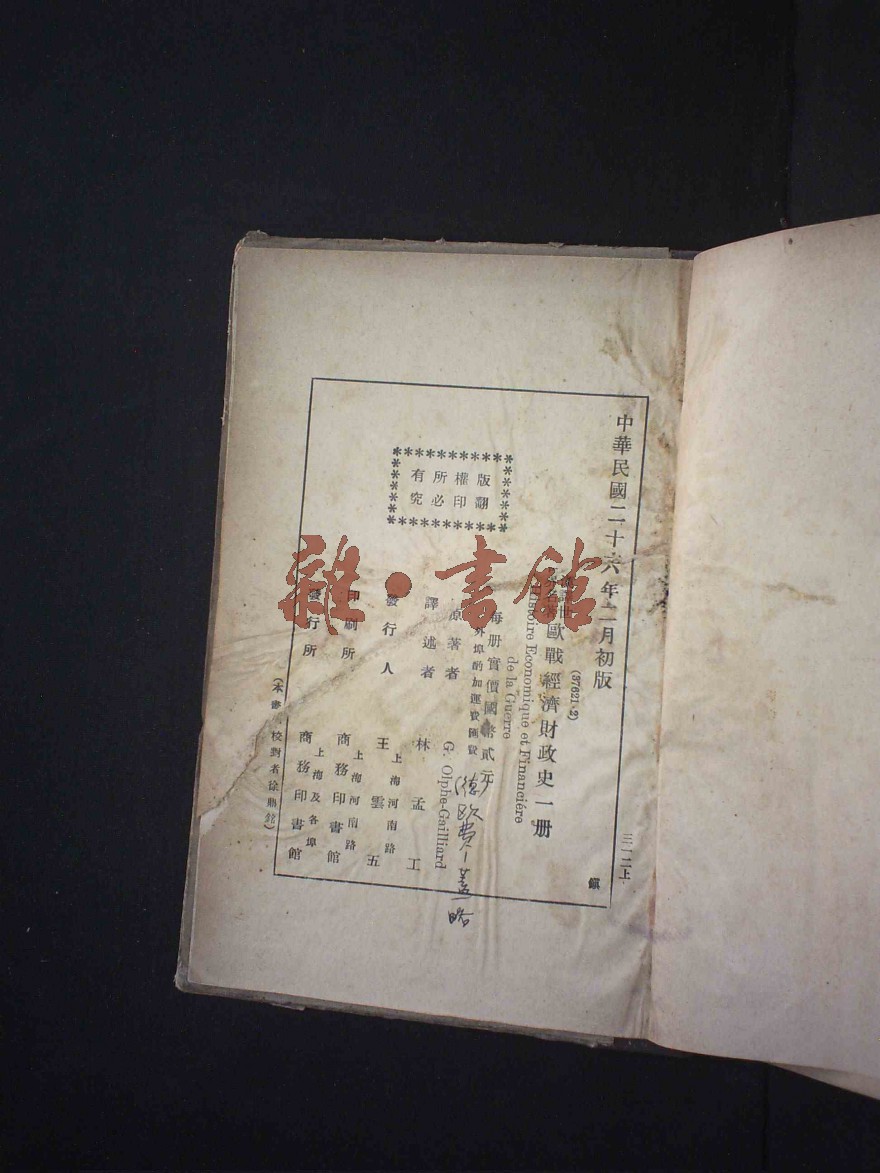 中華民國二十六年二月初版
三一二上
(37621·2)
歐戰經濟財政史一册
鎭
Histoire Economique et Financiére
de la Guerre
每册實價國幣貳元
外埠酌加運費匯費
版權所有
翻印必究
原著者 G. Olphe-Gailliard
譯述者 林孟工
發行人 王雲五
上海河南路
印刷所 商務印書館
上海河南路
發行所 商務印書館
上海及各埠
(本書校對者徐鼎銘)
費-蓋略
雜·書館